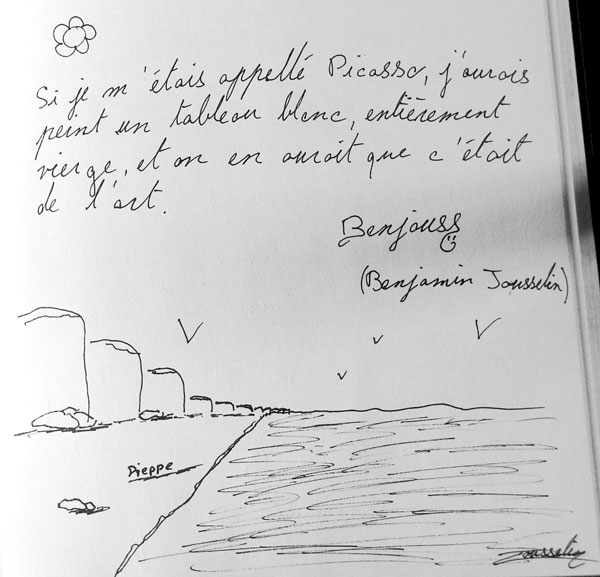 Si je m'étais appellé Picasso, j'aurois
peint un tableau blanc, entièrement
vierge, et on en auroit que c'étoit
de l'art.
Benjouss
(Benjamin Jousselin)
Dieppe
Jousselin